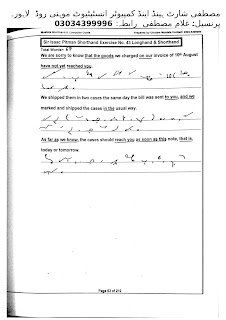 مصطفی شارٹ ہینڈ اینڈ کمپیوٹر انسٹیٹیوٹ موہنی روڈ لاہور۔
پرنسپل: غلام مصطفی رابطہ: 03034399996
Mustafa Shorthand & Computer Centre Prepared by Ghulam Mustafa Contact: 0303-4399996
Sir Isaac Pitman Shorthand Exercise No. 43 Longhand & Shorthand
Total Words: 57
We are sorry to know that the goods we charged on our invoice of 10th August
have not yet reached you.
We shipped them in two cases the same day the bill was sent to you, and we
marked and shipped the cases in the usual way.
As far as we know, the cases should reach you as soon as this note, that is,
today or tomorrow.
Page 63 of 242